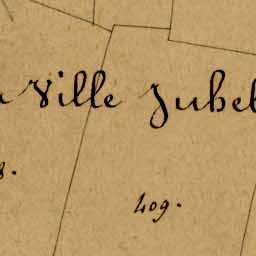 Ville Jubel
8.
409.